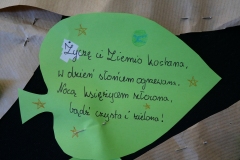 Życzę ci Ziemio kochana,
w dzień słońcem ogrzewana,
Nocą księżycem
bądź czysta i zielona!